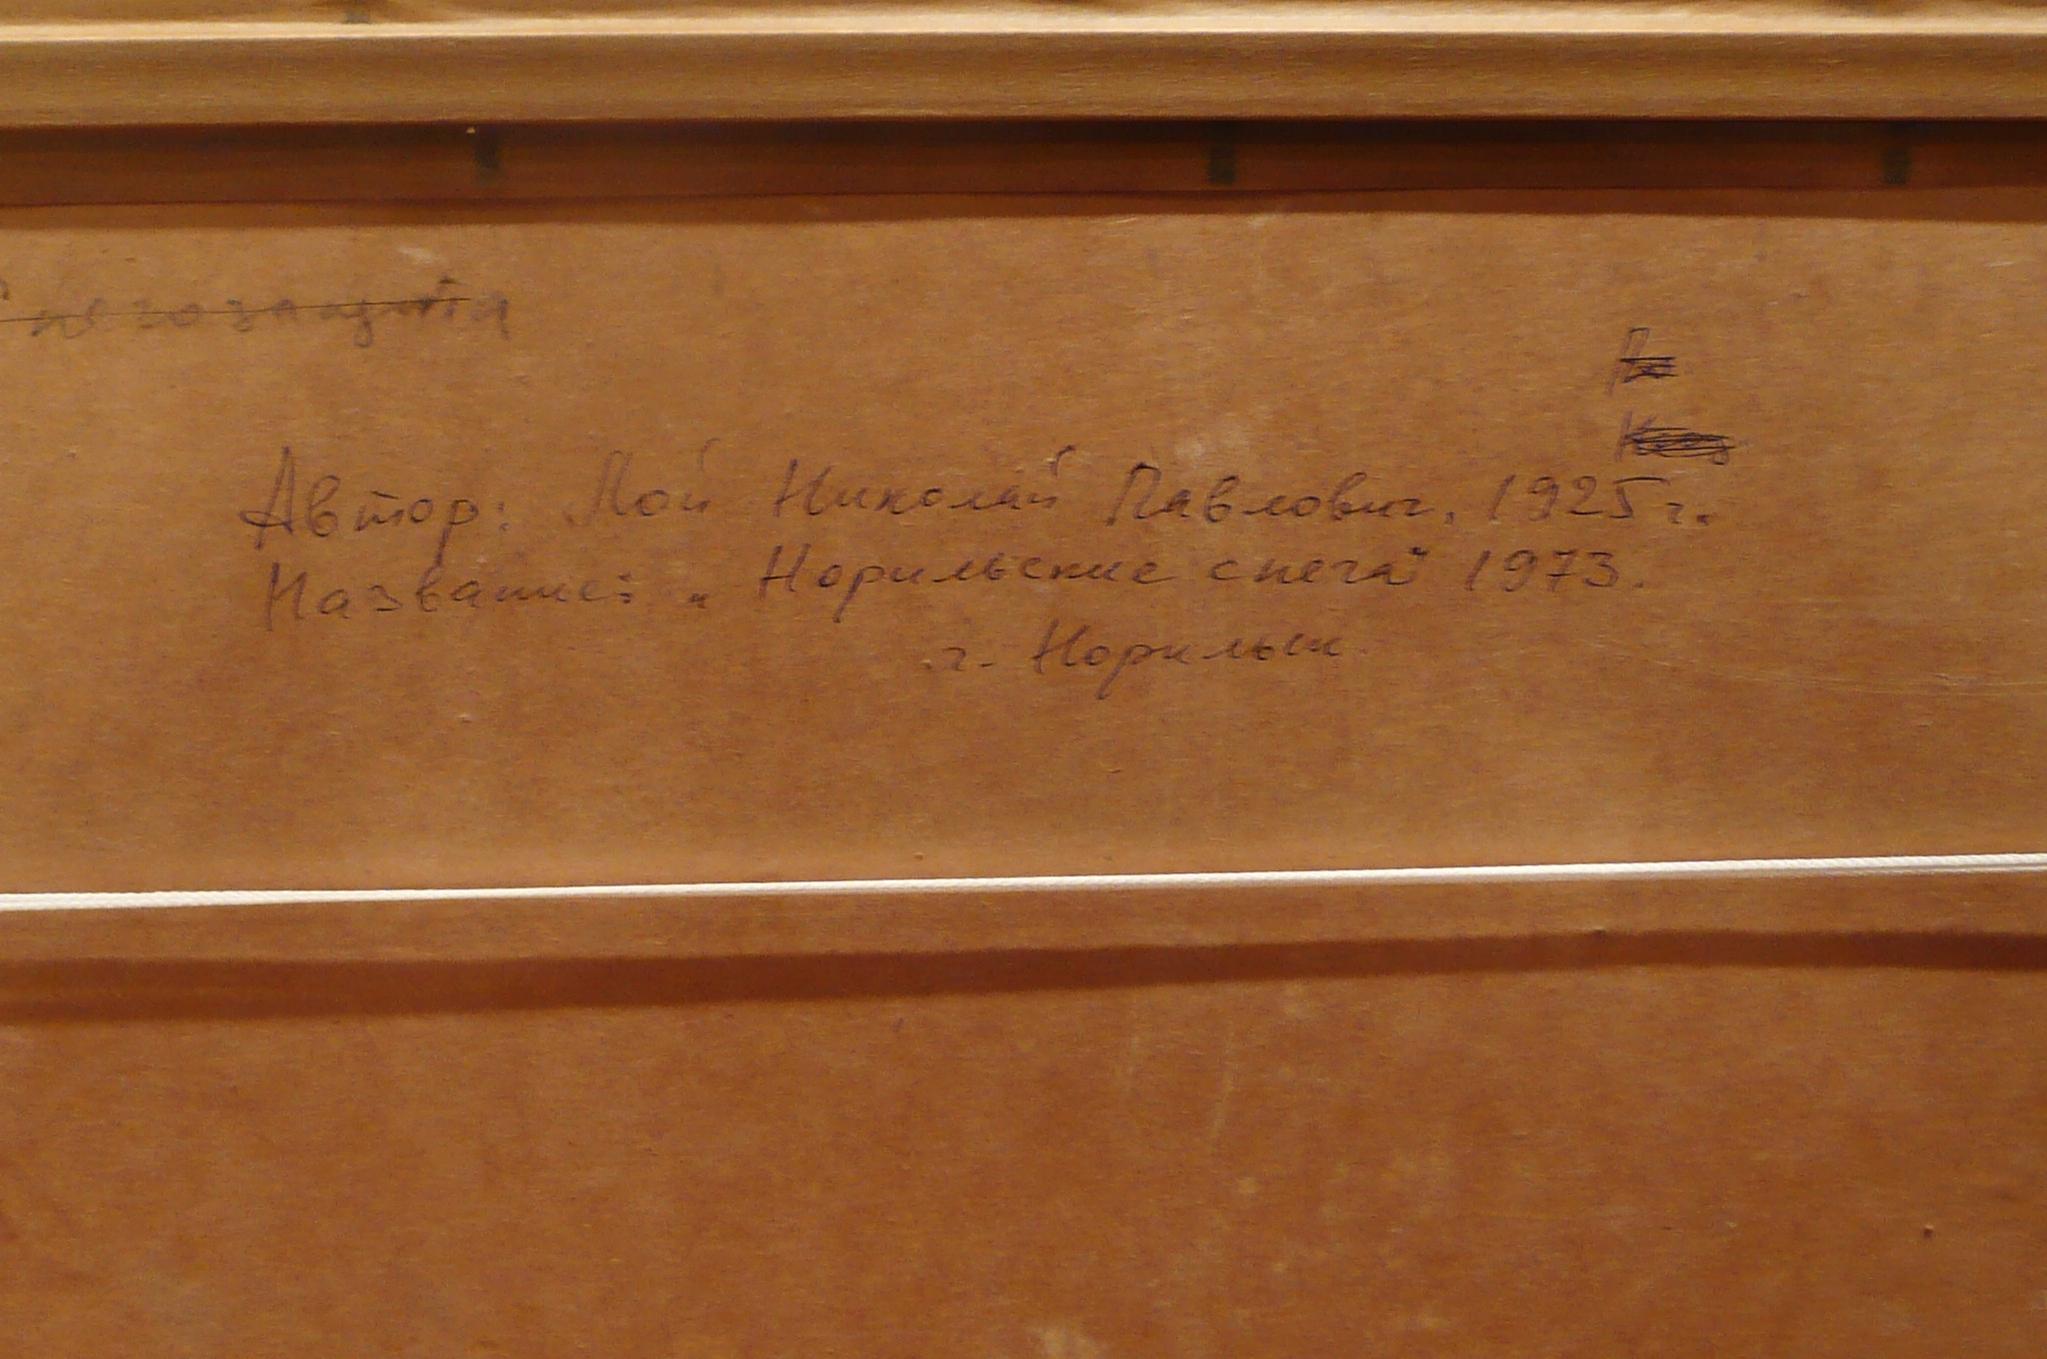 Снегозащита
Автор: Лой Николай Павлович, 1925 г.
Название: „Норильские снега" 1973.
г. Норильск